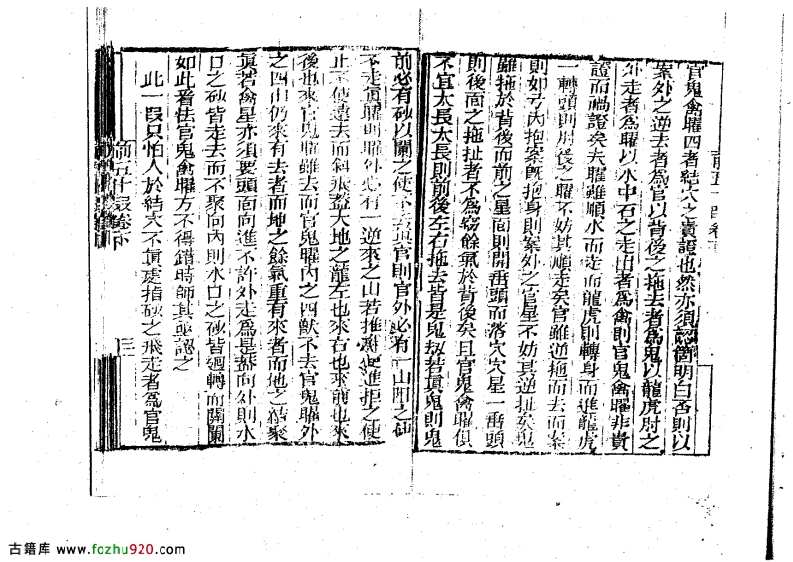 官鬼禽曜四者結穴之貴證也然亦須認得明白否則以
案外之逆去者爲官以背後之拖去者爲鬼以龍虎肘之
外走者爲曜以水中石之走出者爲禽則官鬼禽曜非貴
證而禍證矣夫曜雖順水而走而龍虎則轉身而進龍虎
一轉頭則肘後之曜不妨其順走矣官雖逆拖而去而案
則如弓內抱案旣抱身則案外之官星不妨其逆扯矣鬼
雖拖於背後而前之星面則開番頭而落穴穴星一番頭
則後面之拖扯者不爲竊餘氣於背後矣且官鬼禽曜俱
不宜太長太長則前後左右拖去皆是鬼刼若眞鬼則鬼
前必有砂以闌之使不去眞官則官外必有一山阻之使
不走眞曜明曜外必有一逆來之山若推進拒之使
止不使遠去而斜飛蓋大地之龍左也來右也來前也來
後也來官鬼曜雖去而官鬼曜內之四獸不去官鬼曜外
之四山仍來有去者而地之餘氣重有來者而地之結聚
眞若禽星亦須要頭面向進不許外走爲是蓋向外則水
口之砂皆走去而不聚向內則水口之砂皆迴轉而關闌
如此看法官鬼禽曜方不得錯時師其亟認之
此一段只怕人於結穴不眞處指砂之飛走者爲官鬼
前五十段卷下
三
古籍库 www.fozhu920.com